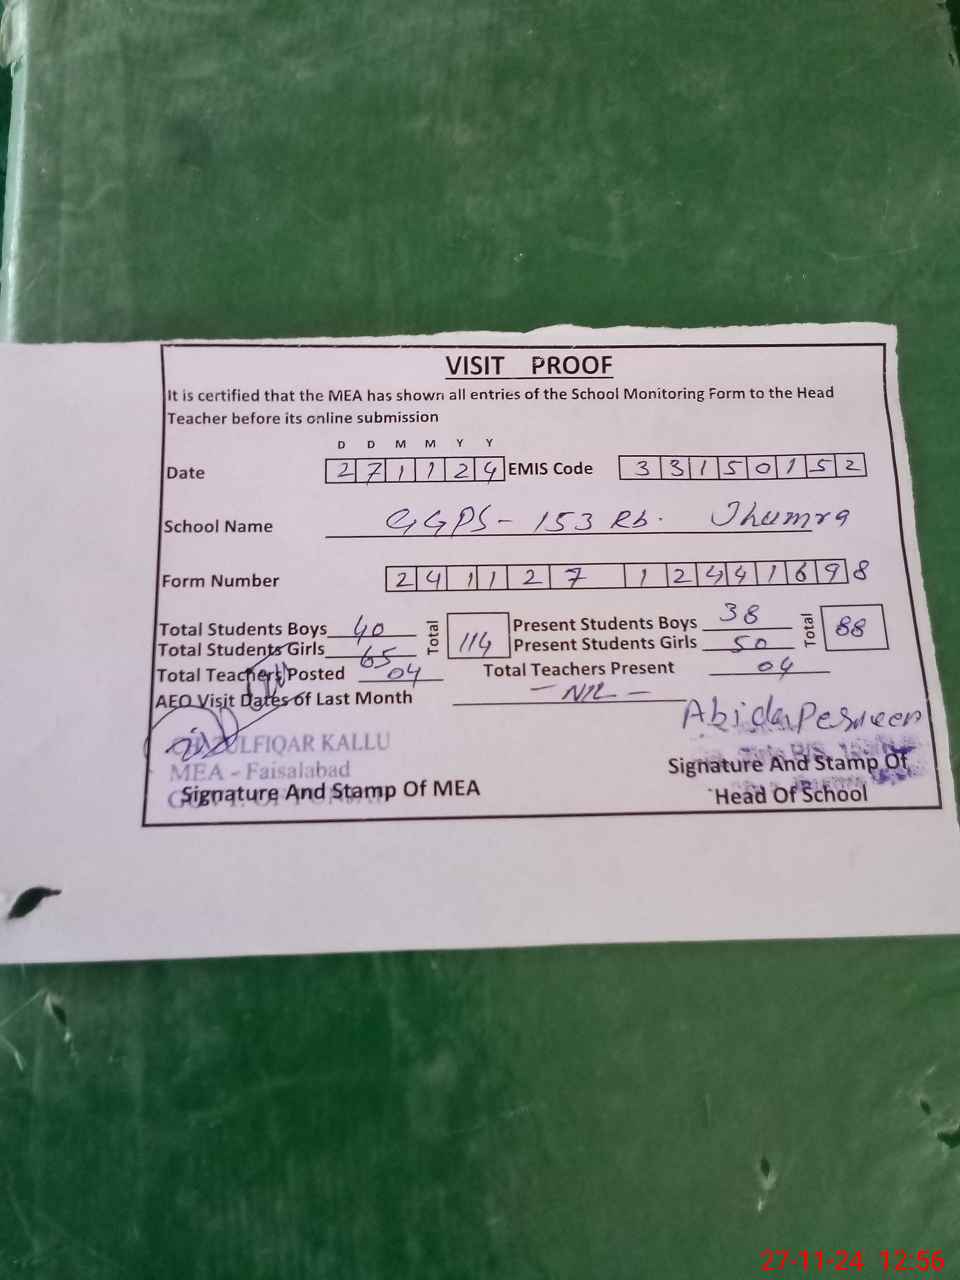 VISIT PROOF
It is certified that the MEA has shown all entries of the School Monitoring Form to the Head
Teacher before its online submission
D D M M Y Y
Date 271124 EMIS Code 33150152
School Name GGPS - 153 Rb. Jhumra
Form Number 24 11 27 12441698
Total Students Boys 40 Total 114 Present Students Boys 38 Total 88
Total Students Girls 65 Present Students Girls 50
Total Teachers Posted 04 Total Teachers Present 04
AEO Visit Dates of Last Month - NIL -
Abida Perveen
ULFIQAR KALLU
MEA - Faisalabad
Signature And Stamp Of MEA
Signature And Stamp Of
Head Of School
27-11-24 12:56